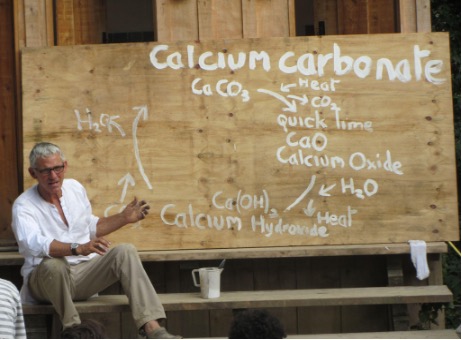 Calcium carbonate
CaCO3
Heat
CO2
quick lime
CaO
Calcium Oxide
H2O
Ca(OH)2
Heat
Calcium Hydroxide